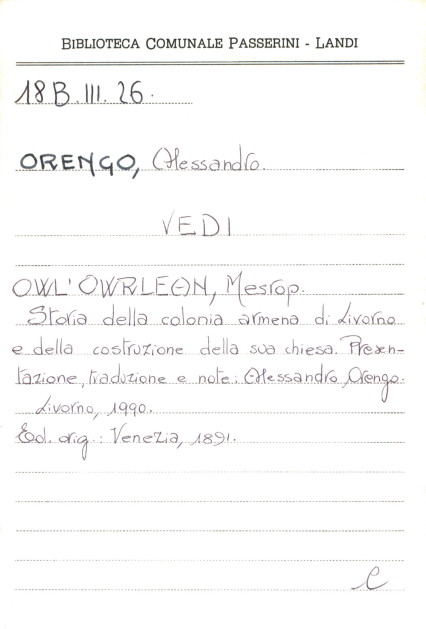 BIBLIOTECA COMUNALE PASSERINI - LANDI
18 B. III. 26.
ORENGO, Alessandro.
VEDI
OWL'OWRLEAN, Mesrop.
Storia della colonia armena di Livorno
e della costruzione della sua chiesa. Presen-
tazione, traduzione e note: Alessandro Orengo.
Livorno, 1990.
Ed. orig.: Venezia, 1891.
C